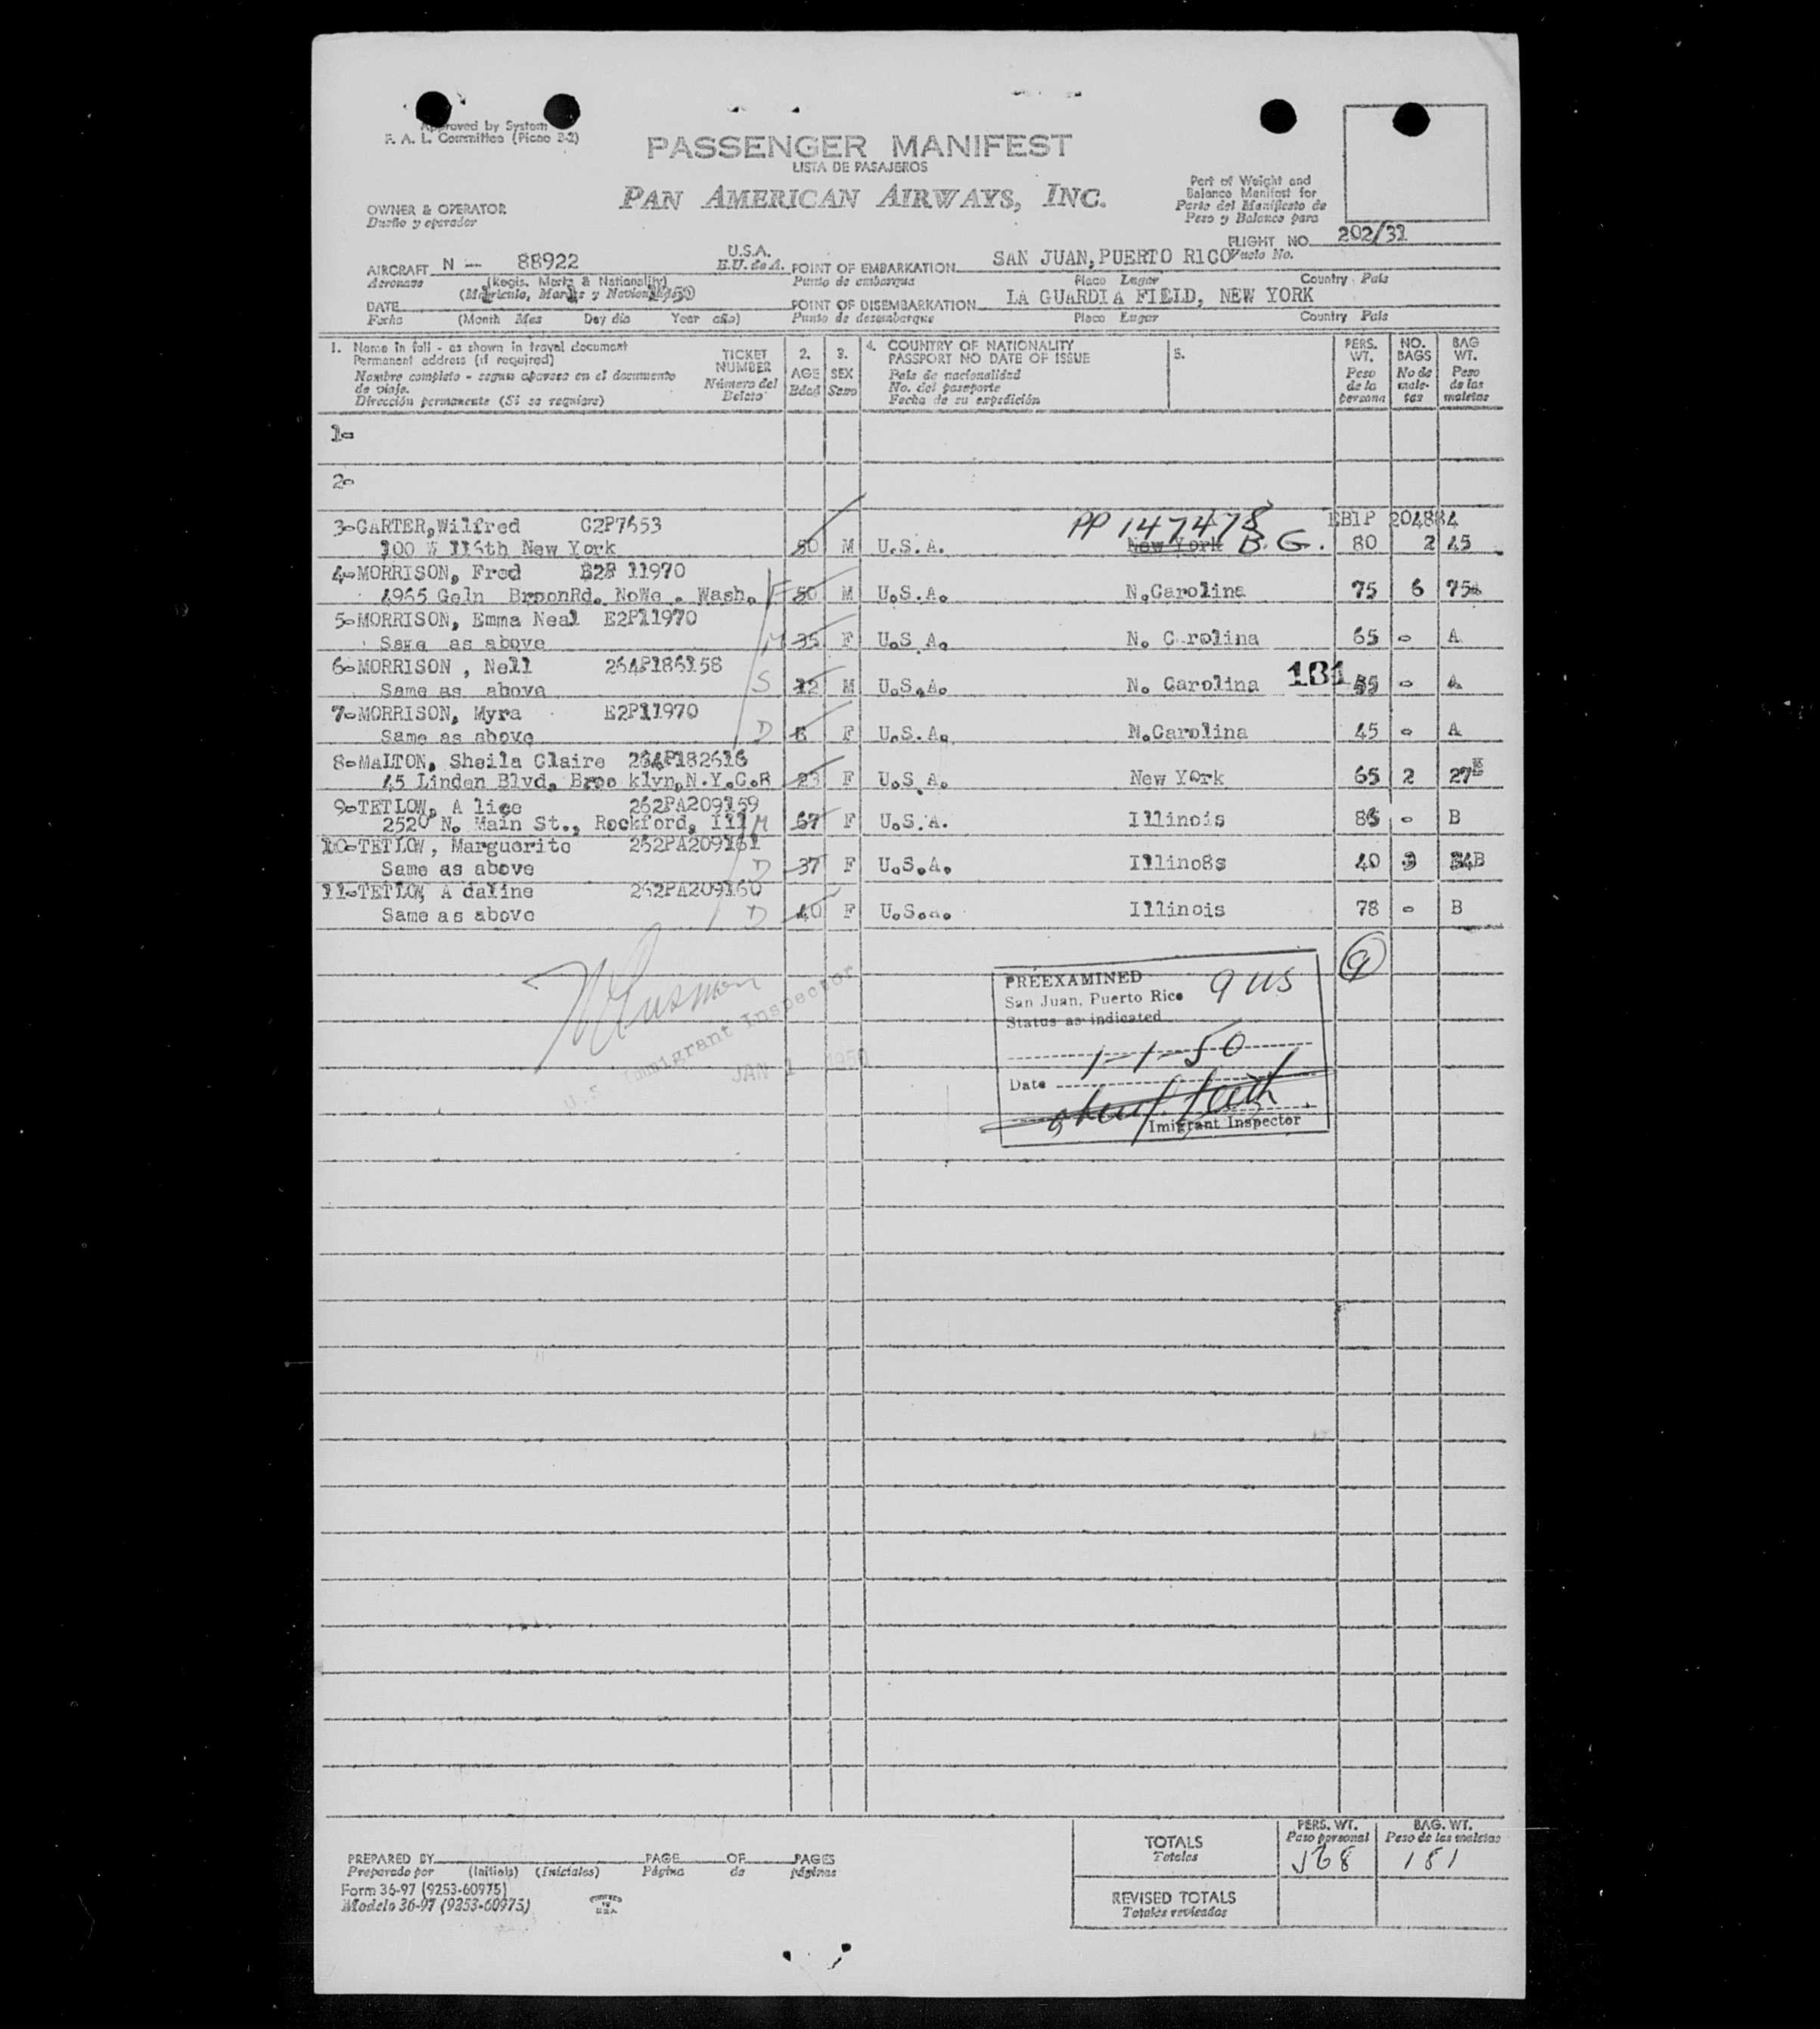 Approved by System
F. A. L. Committee (Picao 3-2)
PASSENGER MANIFEST
LISTA DE PASAJEROS
PAN AMERICAN AIRWAYS, INC.
OWNER & OPERATOR
Dueño y operador
Part of Weight and
Balance Manifest for
Parte del Manifiesto de
Peso y Balance para
FLIGHT NO. 202/31
Vuelo No.
AIRCRAFT N - 88922 U.S.A.
Aeronave (Regis. Marks & Nationality) E.U. de A.
(Matrícula, Marcas y Nacionalidad)
POINT OF EMBARKATION SAN JUAN, PUERTO RICO
Punto de embarque Place Lugar Country País
DATE
Fecha (Month Mes Day día Year año)
POINT OF DISEMBARKATION LA GUARDIA FIELD, NEW YORK
Punto de desembarque Place Lugar Country País
1. Name in full - as shown in travel document
Permanent address (if required)
Nombre completo - segun aparece en el documento
de viaje.
Dirección permanente (Si se requiere)
TICKET
NUMBER
Número del
Boleto
2.
AGE
Edad
3.
SEX
Sexo
4. COUNTRY OF NATIONALITY
PASSPORT NO DATE OF ISSUE
País de nacionalidad
No. del pasaporte
Fecha de su expedición
5.
PERS.
WT.
Peso
de la
persona
NO.
BAGS
No de
male-
tas
BAG
WT.
Peso
de las
maletas
1-
2-
3-CARTER,Wilfred C2P7653 PP 147478 EB1P 204884
100 W 116th New York 50 M U.S.A. New York B.G. 80 2 45
4-MORRISON, Fred E2P 11970
4965 Geln BroonRd. NoWe . Wash. F 50 M U.S.A. N.Carolina 75 6 75A
5-MORRISON, Emma Neal E2P11970
Same as above M 35 F U.S A. N. C rolina 65 - A
6-MORRISON , Nell 264P186158
Same as above S 12 M U.S.A. N. Carolina 181 - A
7-MORRISON, Myra E2P11970
Same as above D F U.S.A. N.Carolina 45 - A
8-MALTON, Sheila Claire 264P182616
45 Linden Blvd, Broo klyn,N.Y.C.R 23 F U.S.A. New York 65 2 27
9-TETLOW, A lice 262PA209159
2520 N. Main St., Rockford, Ill M 67 F U.S.A. Illinois - B
10-TETLOW, Marguerite 262PA209161
Same as above D 37 F U.S.A. Illino8s 40 3 34B
11-TETLOW, A daline 262PA209160
Same as above D 40 F U.S.A. Illinois 78 - B
9
U.S. Immigrant Inspector
JAN 1 1950
PREEXAMINED 9 US
San Juan, Puerto Rico
Status as indicated
1-1-50
Date
Imigrant Inspector
TOTALS
Totales
PERS. WT.
Peso personal
BAG. WT.
Peso de las maletas
568 181
REVISED TOTALS
Totales revisados
PREPARED BY PAGE OF PAGES
Preparado por (Initials) (Iniciales) Página de páginas
Form 36-97 (9253-60975)
Modelo 36-97 (9253-60975)
PRINTED
IN
U.S.A.